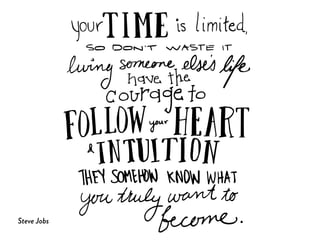 your TIME is limited,
SO DON'T WASTE IT
living someone else's life
have the
courage to
FOLLOW your HEART
& INTUITION
THEY SOMEHOW KNOW WHAT
you truly want to
become.
Steve Jobs